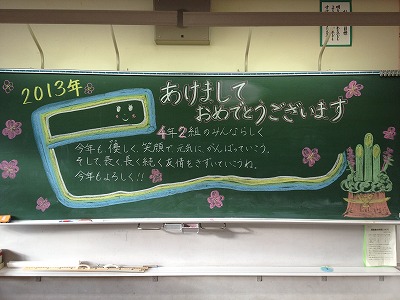 2013年
あけまして
おめでとうございます
4年2組のみんならしく
今年も、優しく、笑顔で元気にがんばっていこう。
そして、長く長く続く友情をきずいていこうね。
今年もよろしく!!